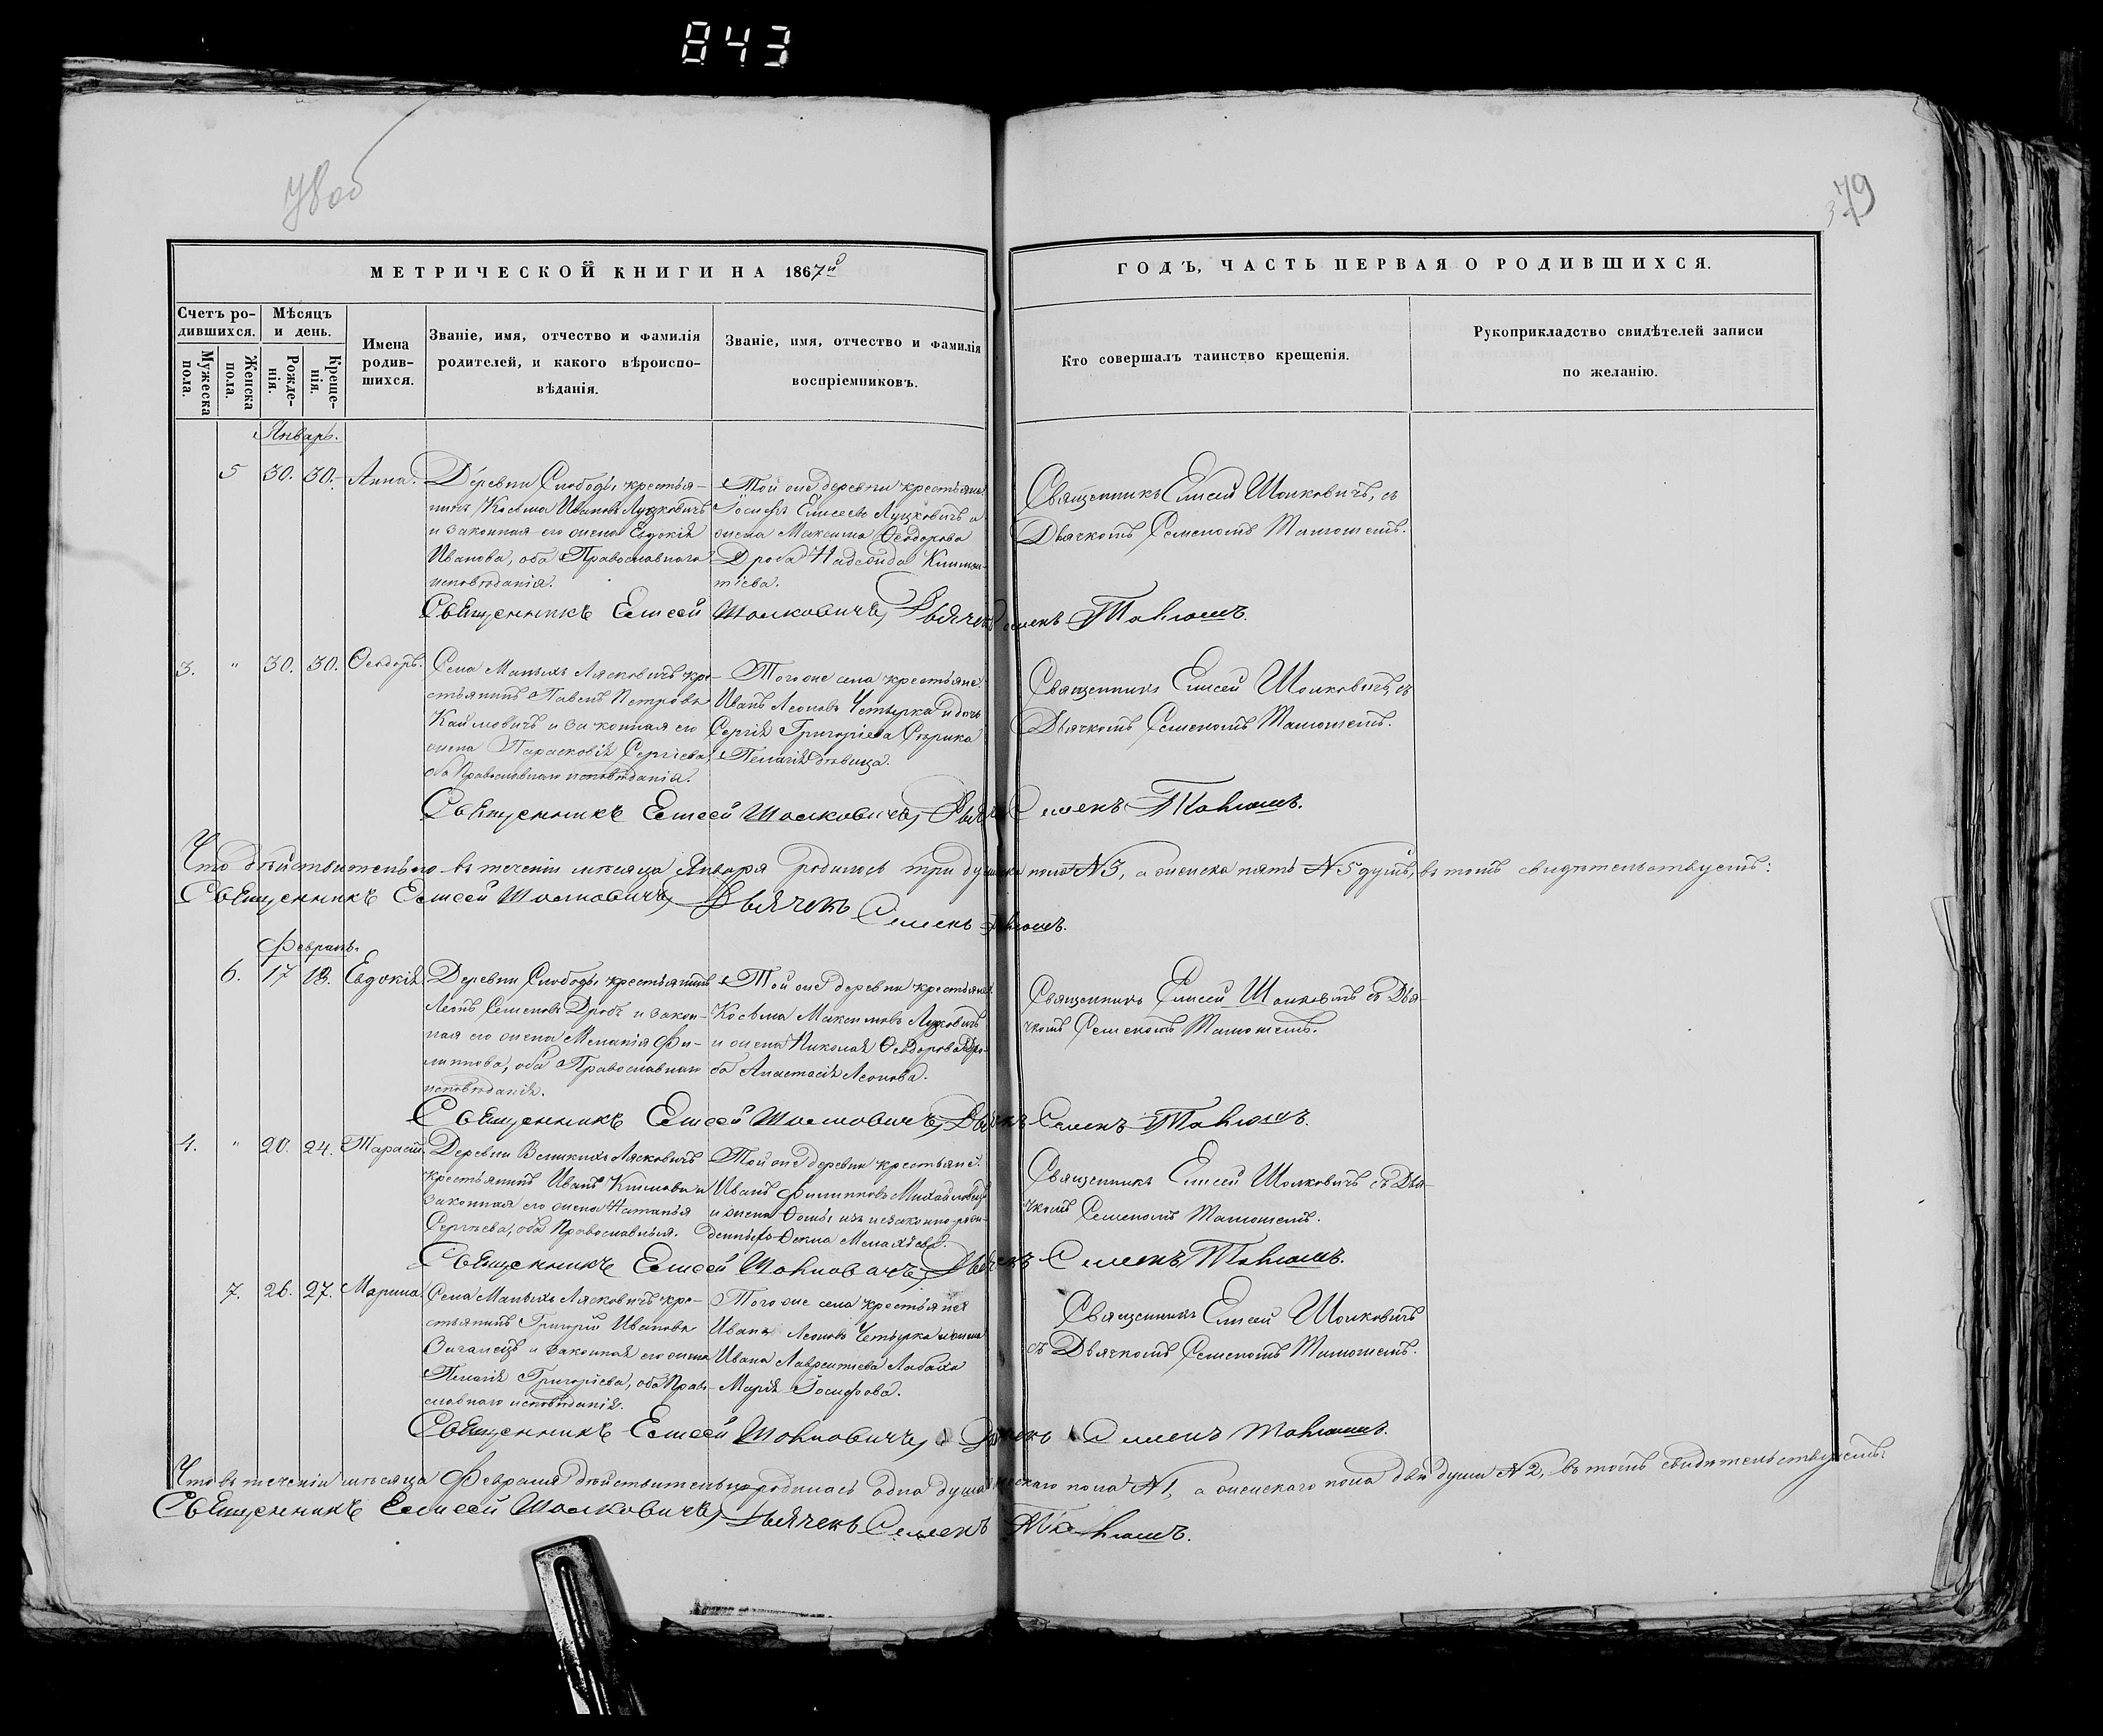 843
379
МЕТРИЧЕСКОЙ КНИГИ НА 1867й
ГОДЪ, ЧАСТЬ ПЕРВАЯ О РОДИВШИХСЯ.
Счетъ ро-
дившихся.
Мужеска
пола.
Женска
пола.
Мѣсяцъ
и день.
Рожде-
нія.
Креще-
нія.
Имена
родив-
шихся.
Званіе, имя, отчество и фамилія
родителей, и какого вѣроиспо-
вѣданія.
Званіе, имя, отчество и фамилія
воспріемниковъ.
Кто совершалъ таинство крещенія.
Рукоприкладство свидѣтелей записи
по желанію.
Январь.
5 30. 30. Анна.
Деревни Слободы крестья-
нинъ Косьма Ивановъ Луцковичъ
и законная его жена Евдокія
Иванова, оба Православнаго
исповѣданія.
Той же деревни крестьяне
Іосифъ Елисеевъ Луцковичъ и
жена Максима Ѳеодорова
Дроба Надежда Климен-
тіева.
Священникъ Елисей Шолковичъ, съ
Дьячкомъ Семеномъ Манюшемъ.
Священникъ Елисей Шолковичъ, Дьячекъ Семенъ
3. " 30. 30. Ѳеодоръ.
Села Малыхъ Лясковичъ кре-
стьянинъ Павелъ Петровъ
Каймовичъ и законная его
жена Парасковія Сергіева,
оба Православнаго исповѣданія.
Того же села крестьяне
Иванъ Леоновъ Четырка и дочь
Сергія Григоріева Сырика
Пелагія дѣвица.
Священникъ Елисей Шолковичъ съ
Дьячкомъ Семеномъ Манюшемъ.
Священникъ Елисей Шолковичъ, Семенъ
Что дѣйствительно въ теченіи мѣсяца Января родилось три души пола №3, а женска пять №5 душъ, въ томъ свидѣтельствуемъ:
Священникъ Елисей Шолковичъ, Дьячекъ Семенъ
Февраль.
6. 17 18. Евдокія.
Деревни Слободы крестьянинъ
Леонъ Семеновъ Дробъ и закон-
ная его жена Меланія Фи-
липпова, оба Православнаго
исповѣданія.
Той же деревни крестьяне
Косьма Максимовъ Луцковичъ
и жена Николая Ѳеодорова Дро-
ба Анастасія Леонова.
Священникъ Елисей Шолковичъ съ Дья-
чкомъ Семеномъ Манюшемъ.
Священникъ Елисей Шолковичъ, Семенъ
4. " 20. 24. Тарасій.
Деревни Великихъ Лясковичъ
крестьянинъ Иванъ Климовъ и
законная его жена Наталья
Сергѣева, оба Православныя.
Той же деревни крестьяне
Иванъ Филипповъ
и жена Ѳомы изъ незаконно-рож-
денныхъ Ѳекла
Священникъ Елисей Шолковичъ съ Дья-
чкомъ Семеномъ Манюшемъ.
Священникъ Елисей Шолковичъ, Семенъ
7. 26. 27. Марина.
Села Малыхъ Лясковичъ кре-
стьянинъ Григорій Ивановъ
и законная его жена
Пелагія Григоріева, оба Право-
славнаго исповѣданія.
Того же села крестьяне
Иванъ Леоновъ Четырка и жена
Ивана Лаврентіева
Марія Іосифова.
Священникъ Елисей Шолковичъ
съ Дьячкомъ Семеномъ Манюшемъ.
Священникъ Елисей Шолковичъ, Семенъ
Что въ теченіи мѣсяца Февраля дѣйствительно родилась одна душа пола №1, а женскаго пола двѣ души №2, въ томъ свидѣтельствуемъ:
Священникъ Елисей Шолковичъ, Дьячекъ Семенъ